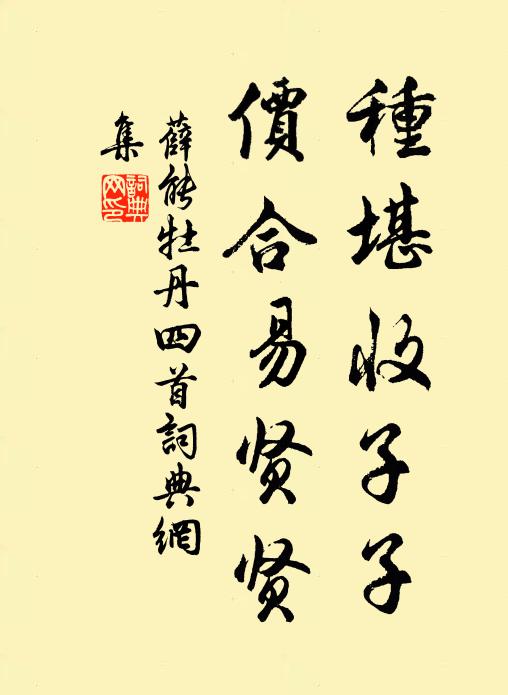 種堪收子子
價合易贤贤
薛能牡丹四首詞典網
集
詞典網印